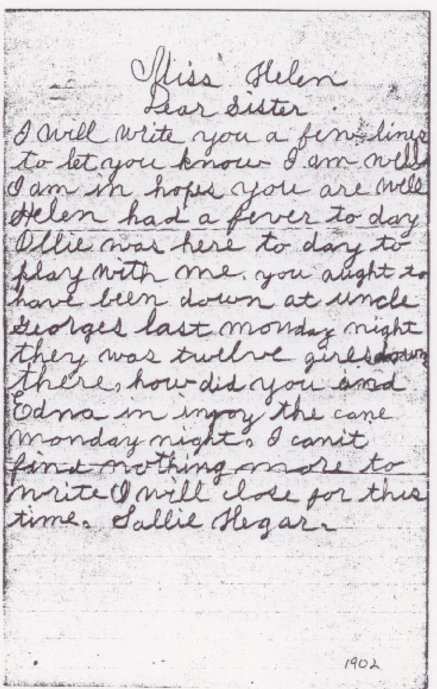 Miss Helen
Dear Sister
I will write you a few lines
to let you know I am well
I am in hopes you are well
Helen had a fever to day
Ollie was here to day to
play with me. you aught to
have been down at uncle
Georges last monday night
they was twelve girls down
there, how did you and
Edna in injoy the cane
monday night. I canit
find nothing more to
write I will close for this
time. Sallie Hegar.
1902